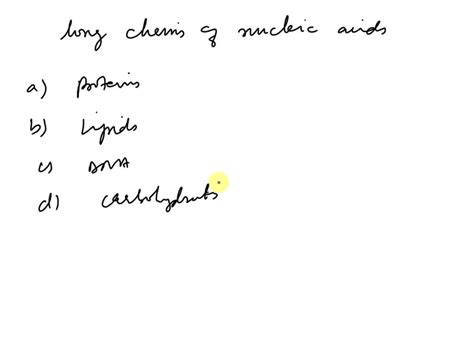 long chains of nucleic acids
a) proteins
b) Lipids
c) DNA
d) carbohydrates